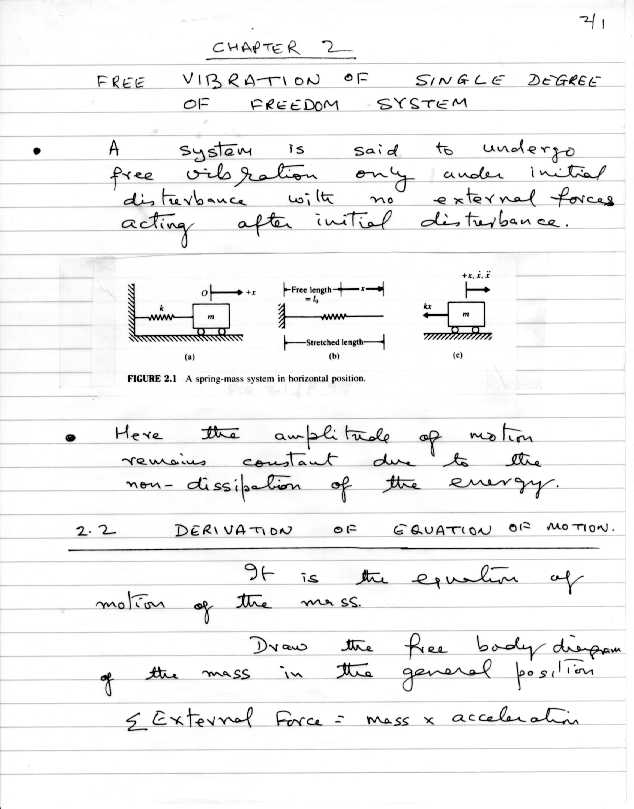 2/1
CHAPTER 2
FREE VIBRATION OF SINGLE DEGREE
OF FREEDOM SYSTEM
• A system is said to undergo
free vibration only under initial
disturbance with no external forces
acting after initial disturbance.
O +x
k
m
(a)
Free length x
= l₀
Stretched length
(b)
+x, ẋ, ẍ
kx
m
(c)
FIGURE 2.1 A spring-mass system in horizontal position.
• Here the amplitude of motion
remains constant due to the
non-dissipation of the energy.
2.2 DERIVATION OF EQUATION OF MOTION.
It is the equation of
motion of the mass.
Draw the free body diagram
of the mass in the general position
Σ External Force = mass x acceleration